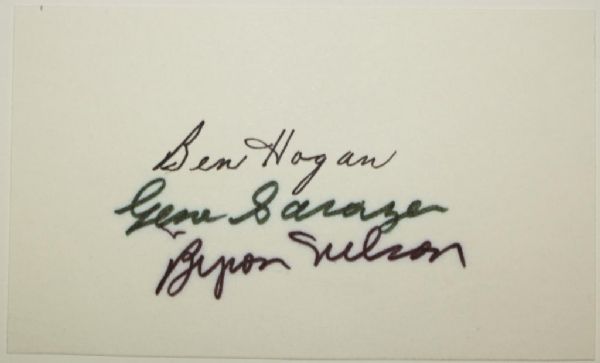 Ben Hogan
Gene Sarazen
Byron Nelson